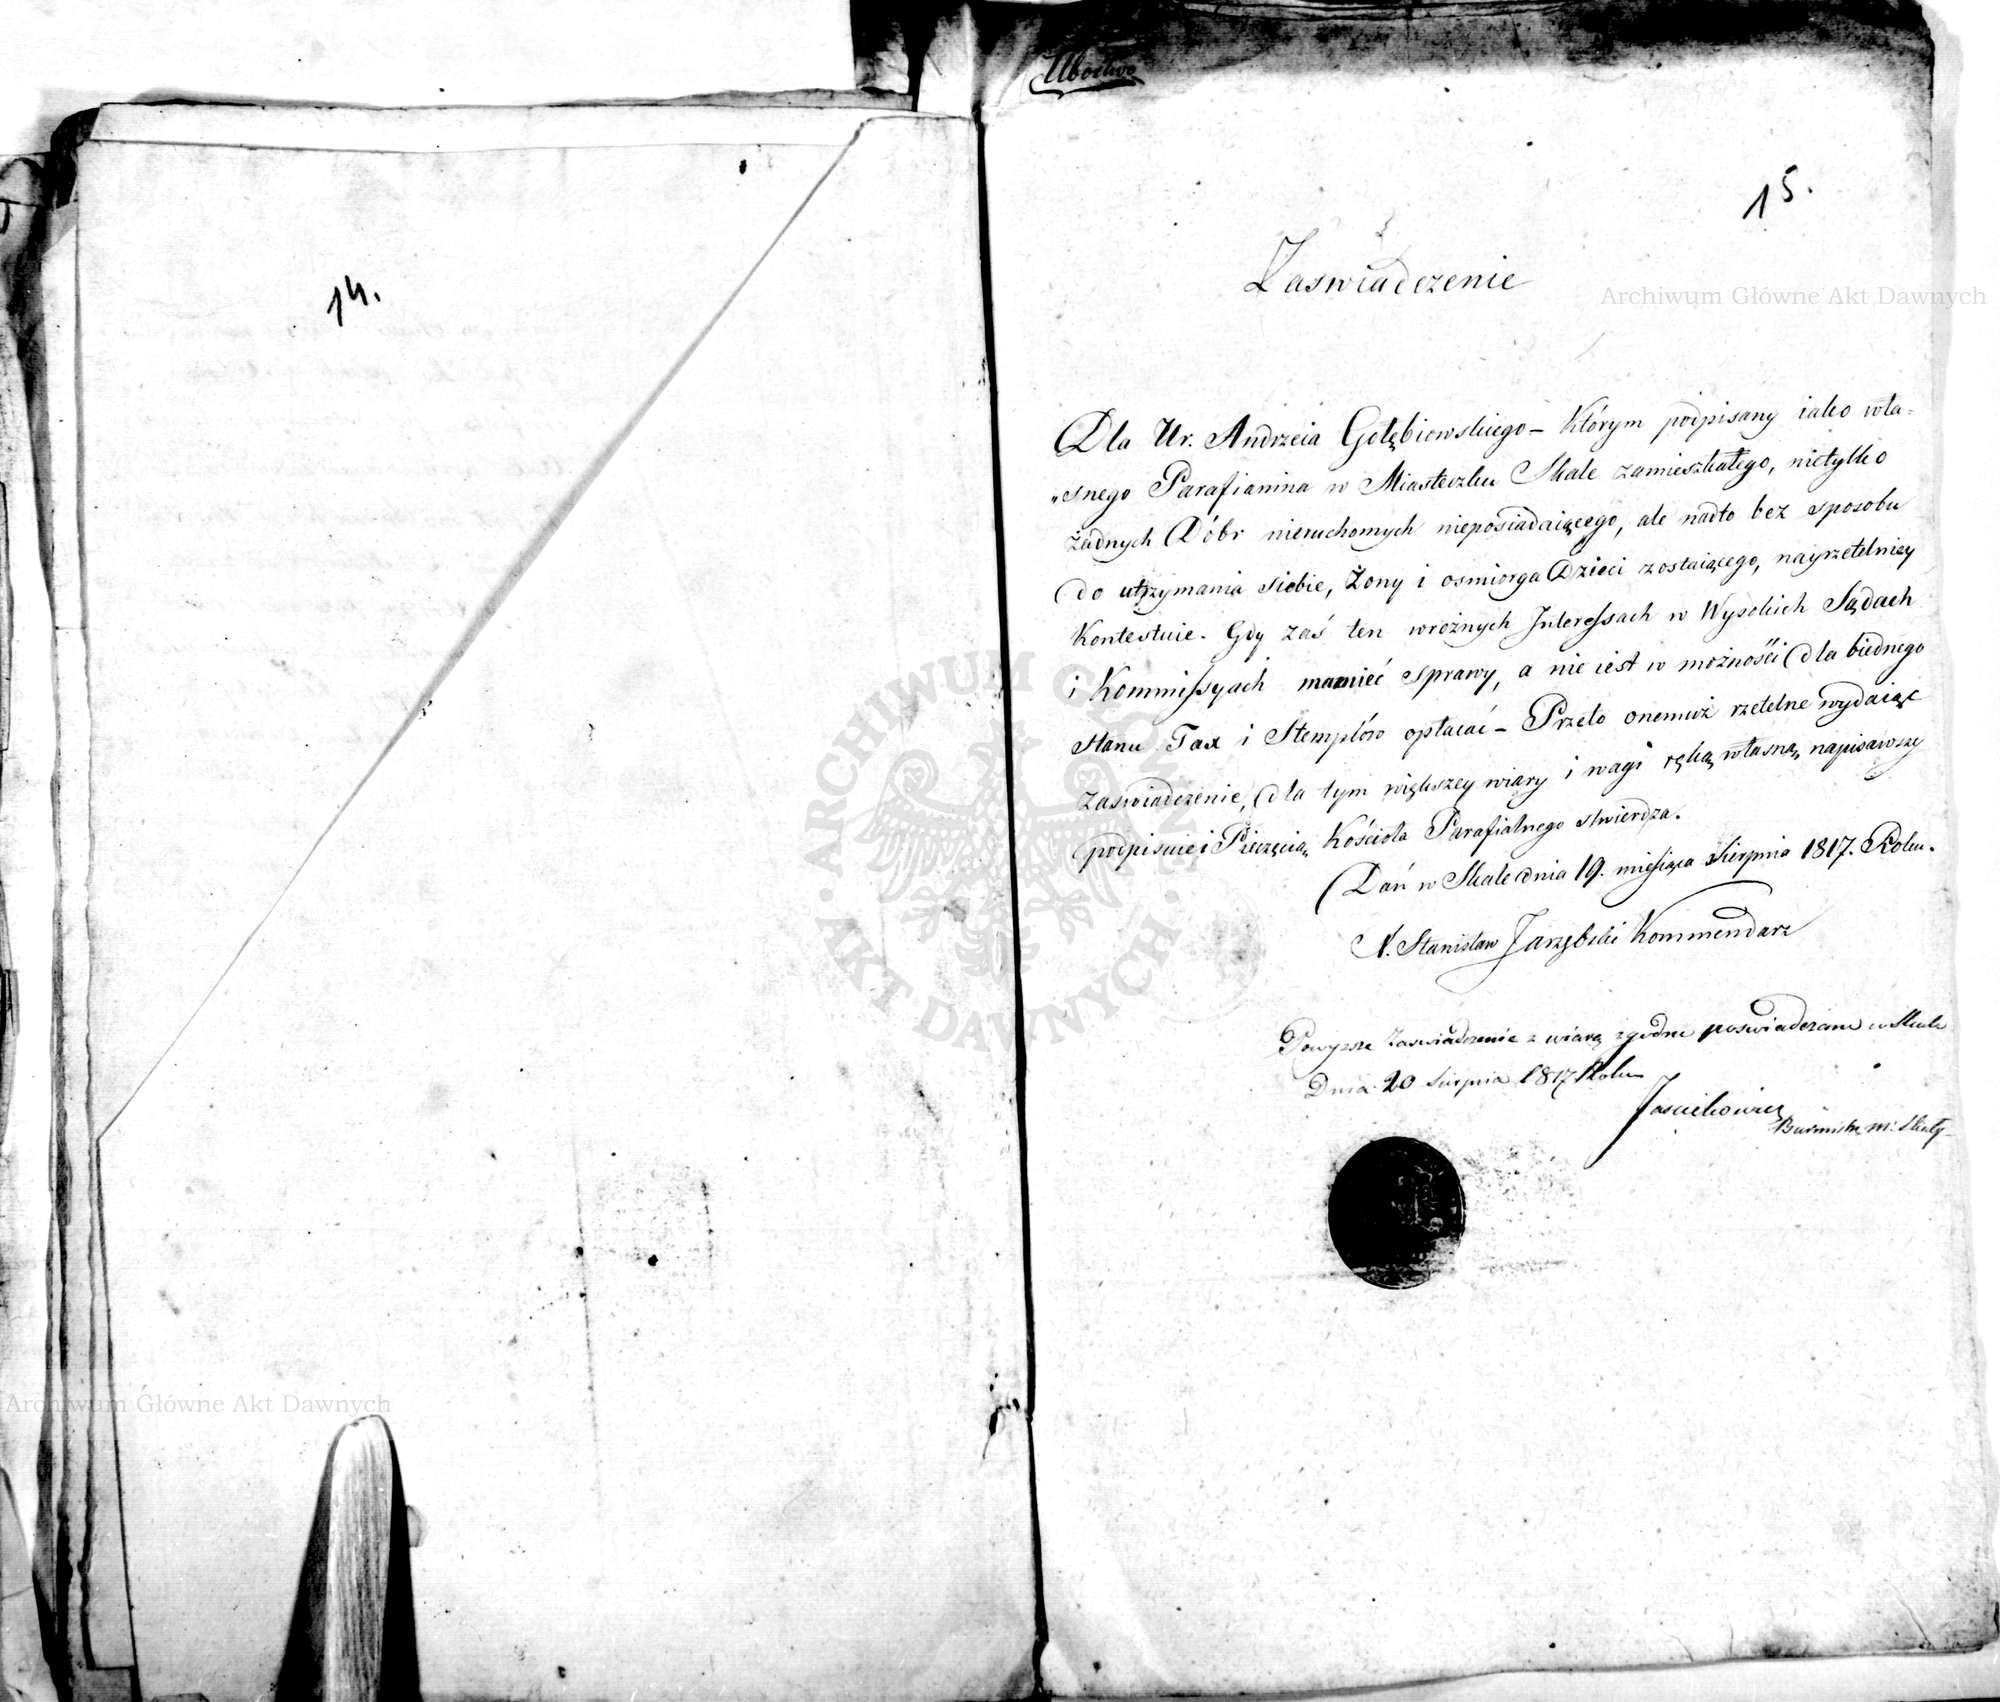 14.
Ubostwo
15.
Zaswiadczenie
Dla Ur. Andrzeia Gołębiowskiego – Którym podpisany iako wła-
„snego Parafianina w Miasteczku Skale zamieszkałego, nietylko
żadnych Dóbr nieruchomych nieposiadaiącego, ale nadto bez sposobu
do utrzymania siebie, Żony i osmiorga Dzieci zostaiącego, nayrzetelniey
Kontestuie. Gdy zaś ten wrożnych Interessach w Wysokich Sądach
i Kommissyach mamieć sprawy, a nie iest w możnośći dla biednego
stanu Tax i Stemplów opłacać – Przeto onemuż rzetelne wydaiąc
zaswiadczenie, dla tym większey wiary i wagi ręką własną napisawszy
podpisuie i Pieczęcią Kościoła Parafialnego stwierdza.
Dań w Skale dnia 19. miesiąca Sierpnia 1817. Roku.
X. Stanisław Jarzębski Kommendarz
Powyzsze Zaswiadczenie z wiarą zgodne poswiadczam w Skale
Dnia 20 Sierpnia 1817 Roku
Burmistrz m: Skały
Archiwum Główne Akt Dawnych
Archiwum Główne Akt Dawnych
ARCHIWUM GŁÓWNE · AKT DAWNYCH ·